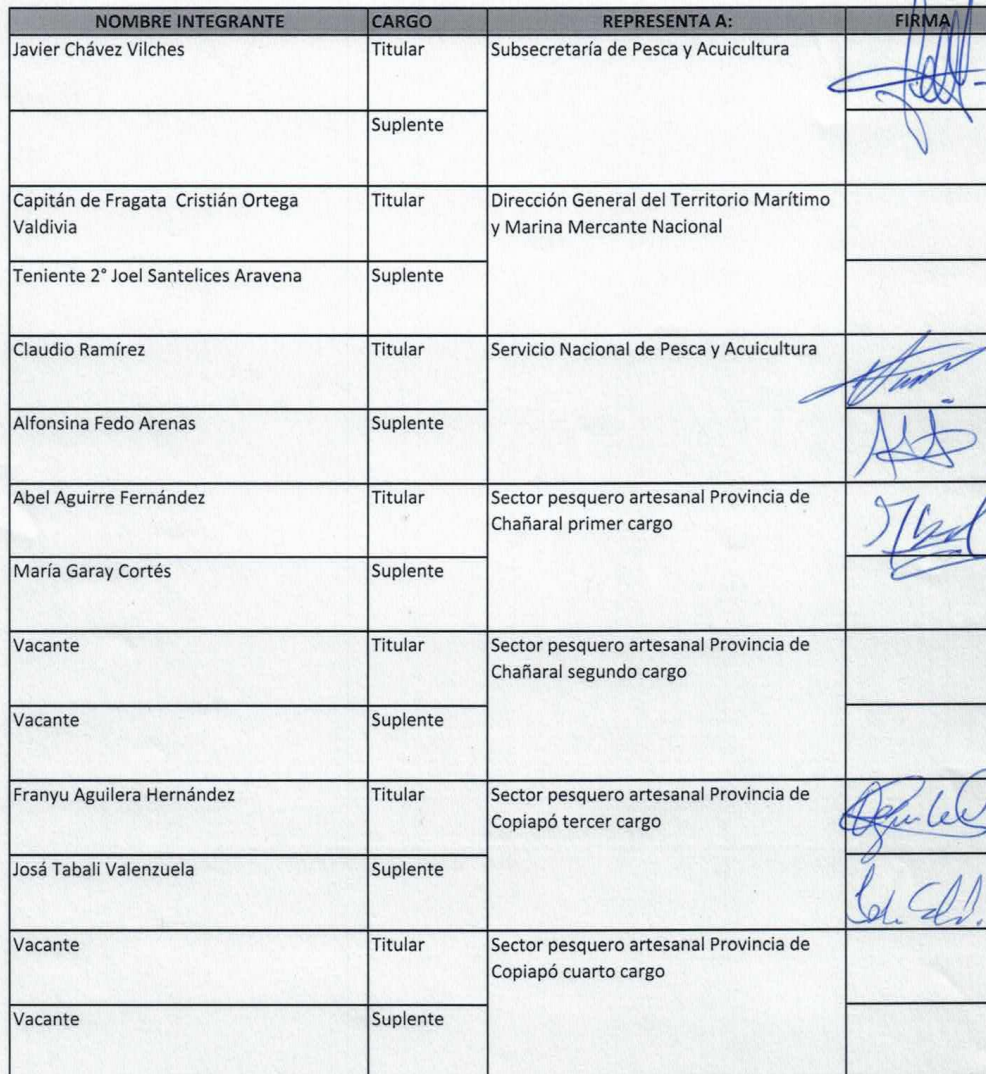 NOMBRE INTEGRANTE CARGO REPRESENTA A: FIRMA
Javier Chávez Vilches Titular Subsecretaría de Pesca y Acuicultura
Suplente
Capitán de Fragata Cristián Ortega Titular Dirección General del Territorio Marítimo
Valdivia y Marina Mercante Nacional
Teniente 2° Joel Santelices Aravena Suplente
Claudio Ramírez Titular Servicio Nacional de Pesca y Acuicultura
Alfonsina Fedo Arenas Suplente
Abel Aguirre Fernández Titular Sector pesquero artesanal Provincia de
Chañaral primer cargo
María Garay Cortés Suplente
Vacante Titular Sector pesquero artesanal Provincia de
Chañaral segundo cargo
Vacante Suplente
Franyu Aguilera Hernández Titular Sector pesquero artesanal Provincia de
Copiapó tercer cargo
Josá Tabali Valenzuela Suplente
Vacante Titular Sector pesquero artesanal Provincia de
Copiapó cuarto cargo
Vacante Suplente